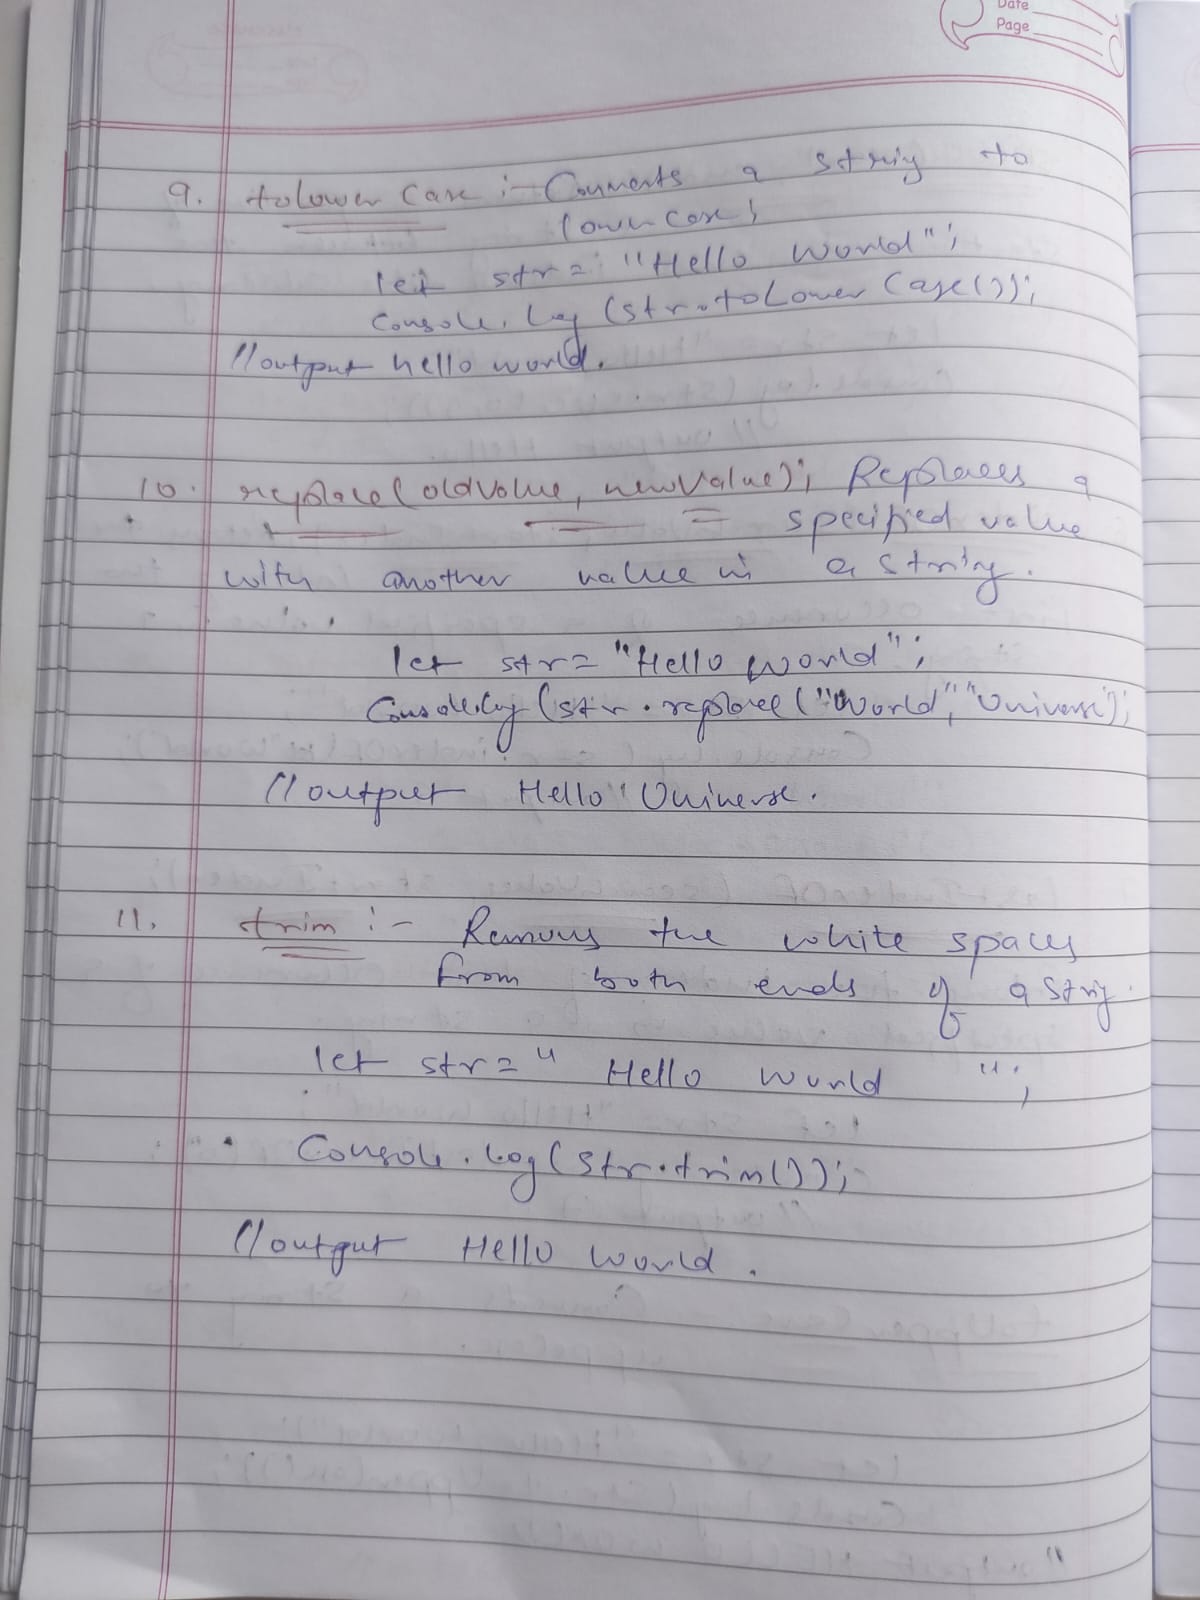 Date
Page
9. toLowerCase :- Converts a string to
lowercase;
let str = "Hello World";
Console.log (str.toLowerCase());
//output hello world.
10. replace(oldValue, newValue); Replaces a
specified value
with another value in a string.
let str = "Hello World";
Console.log (str.replace("World", "Universe");
//output Hello Universe.
11. trim :- Removes the white spaces
from both ends of a string.
let str = " Hello World ";
Console.log(str.trim());
//output Hello World.